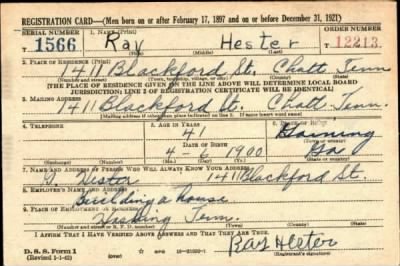 REGISTRATION CARD—(Men born on or after February 17, 1897 and on or before December 31, 1921)
SERIAL NUMBER 1. NAME (Print) ORDER NUMBER
T 1566 Ray Hester T 12213
(First) (Middle) (Last)
2. PLACE OF RESIDENCE (Print)
1411 Blackford St. Chatt Tenn
(Number and street) (Town, township, village, or city) (County) (State)
[THE PLACE OF RESIDENCE GIVEN ON THE LINE ABOVE WILL DETERMINE LOCAL BOARD
JURISDICTION; LINE 2 OF REGISTRATION CERTIFICATE WILL BE IDENTICAL]
3. MAILING ADDRESS
1411 Blackford St. Chatt Tenn.
[Mailing address if other than place indicated on line 2. If same insert word same]
4. TELEPHONE 5. AGE IN YEARS 6. PLACE OF BIRTH
41
DATE OF BIRTH
1900 Ga
(Exchange) (Number) (Mo.) (Day) (Yr.) (State or country)
7. NAME AND ADDRESS OF PERSON WHO WILL ALWAYS KNOW YOUR ADDRESS
Hester 1411 Blackford St.
8. EMPLOYER'S NAME AND ADDRESS
Building a house
9. PLACE OF EMPLOYMENT OR BUSINESS
Tenn.
(Number and street or R. F. D. number) (Town) (County) (State)
I AFFIRM THAT I HAVE VERIFIED ABOVE ANSWERS AND THAT THEY ARE TRUE.
D. S. S. Form 1
(Revised 1-1-42) (over) Ray Hester
(Registrant's signature)